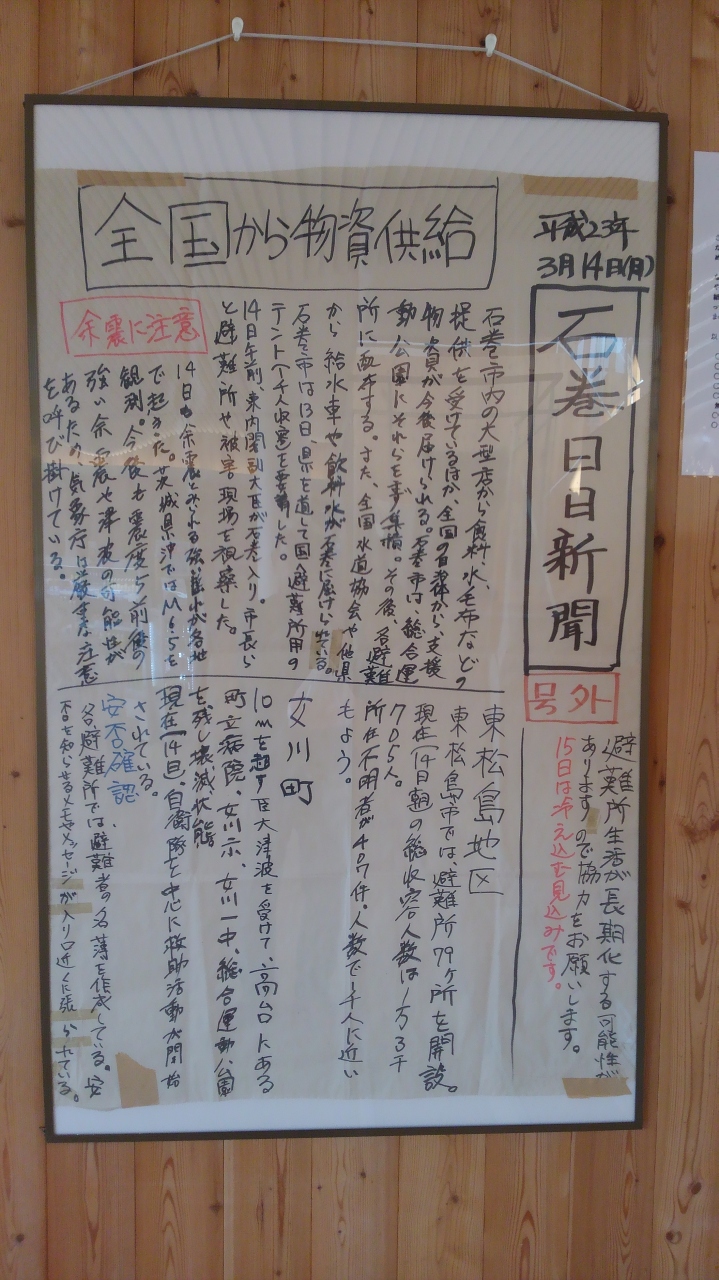 平成23年
3月14日(月)
石巻日日新聞
号外
避難所生活が長期化する可能性が
ありますので協力をお願いします。
15日は冷え込む見込みです。
全国から物資供給
石巻市内の大型店から食料、水、毛布などの
提供を受けているほか、全国の自治体から支援
物資が今後届けられる。石巻市は、総合運
動公園にそれらをまず集積。その後、各避難
所に配布する。また、全国水道協会や他県
から給水車や飲料水が石巻に届けられている。
石巻市は13日、県を通して国へ避難所用の
テント(千人収容)を要請した。
14日午前、東内閣副大臣が石巻入り。市長ら
と避難所や被害現場を視察した。
余震に注意
14日も余震とみられる強い揺れが各地
で起きた。茨城県沖ではM6.5を
観測。今後も震度5前後の
強い余震や津波の可能性が
あるため、気象庁は厳重な注意
を呼び掛けている。
東松島地区
東松島市では、避難所79ヶ所を開設。
現在(14日朝)の総収容人数は1万3千
705人。
所在不明者が407件。人数で千人に近い
もよう。
女川町
10mを超す巨大津波を受けて、高台にある
町立病院、女川二小、女川一中、総合運動公園
を残し壊滅状態
現在(14日)、自衛隊を中心に救助活動が開始
されている。
安否確認
各避難所では避難者の名簿を作成している。安
否を知らせるメモやメッセージが入り口近くに張られている。